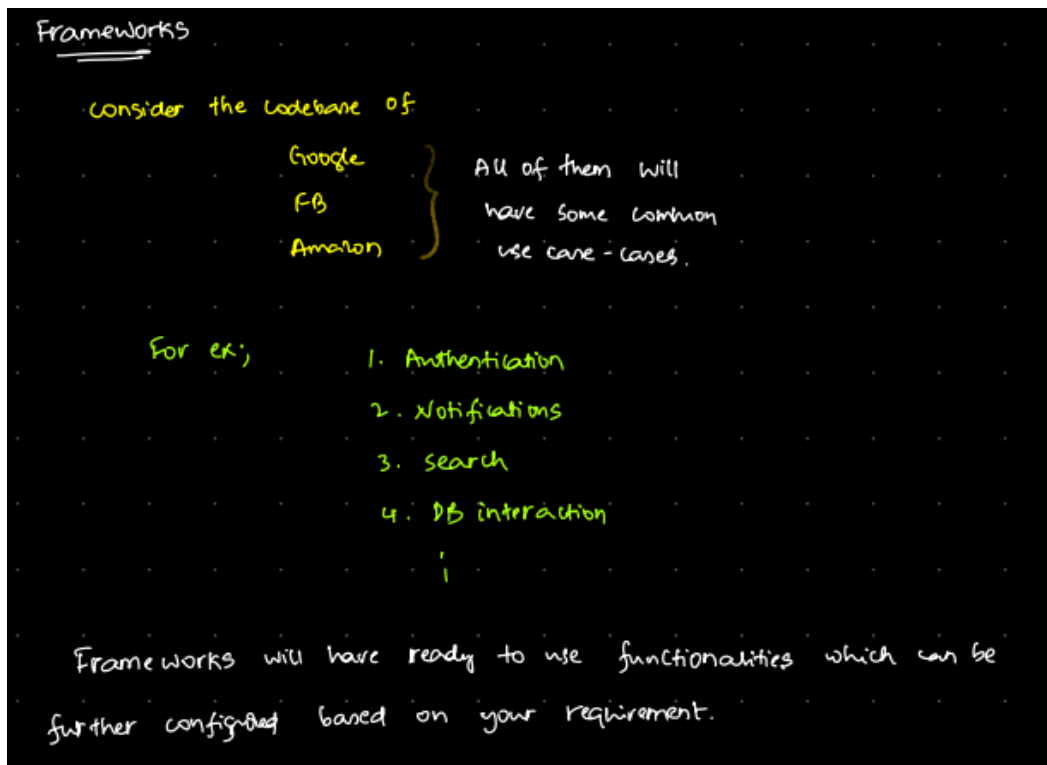 Frameworks
consider the codebase of
Google
FB
Amazon
All of them will
have some common
use case-cases.
For ex;
1. Authentication
2. Notifications
3. search
4. DB interaction
Frameworks will have ready to use functionalities which can be
further configured based on your requirement.